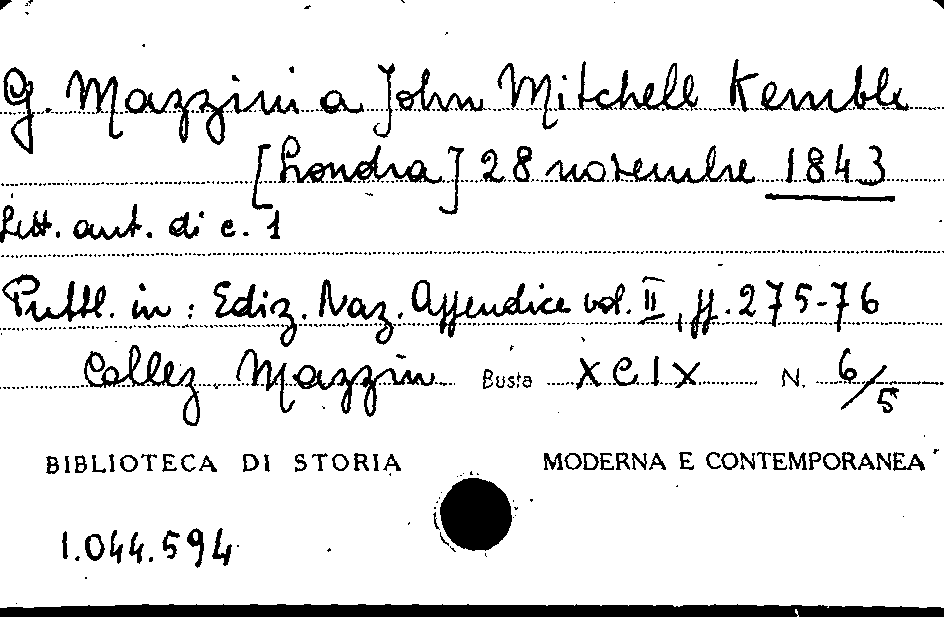 G. Mazzini a John Mitchell Kemble
[Londra] 28 novembre 1843
Lett. aut. di c. 1
Pubbl. in: Ediz. Naz. Appendice vol. II, pp. 275-76
Collez. Mazzini Busta XCIX N. 6/5
BIBLIOTECA DI STORIA MODERNA E CONTEMPORANEA
1.044.594